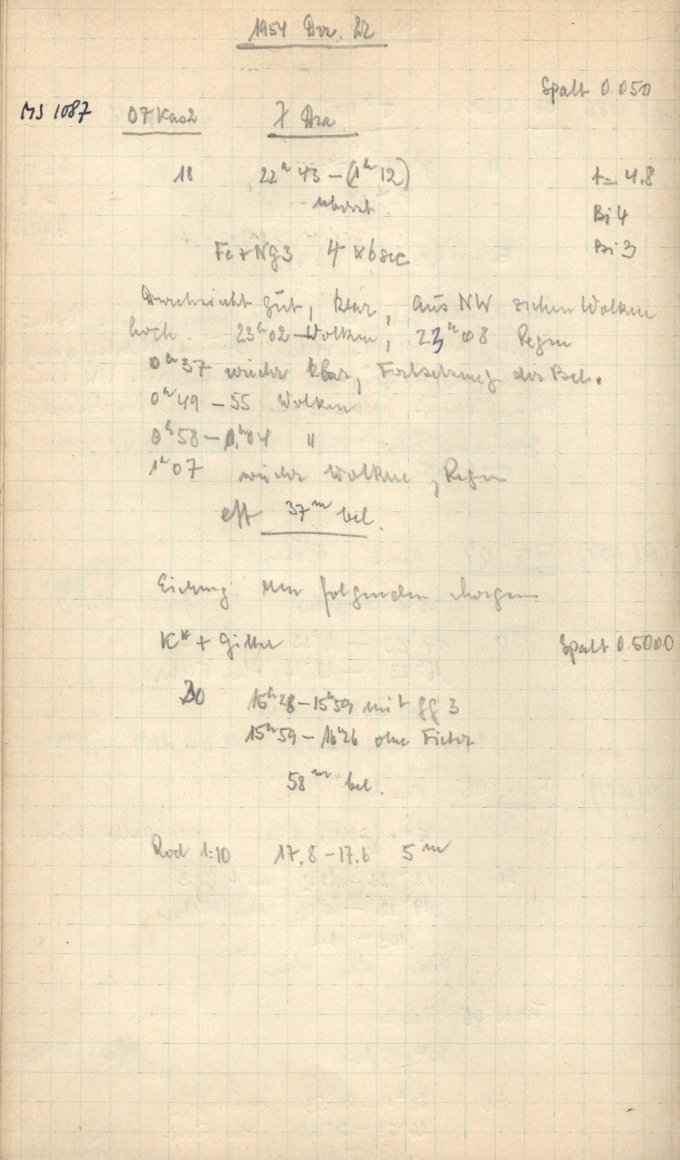 1954 Dez. 22
Spalt 0.050
MS 1087 07Kao2 Dra
18 22ʰ43 – (1ʰ12) t = 4.8
unterbr. Bi 4
Fe + Ng3 4 × 6 sec Bi 3
Durchsicht gut, klar, aus NW ziehen Wolken
hoch 23ʰ02 – Wolken, 23ʰ08 Regen
0ʰ37 wieder klar, Fortsetzung der Bel.
0ʰ49 – 55 Wolken
0ʰ58 – 1ʰ04 "
1ʰ07 wieder Wolken, Regen
eff 37ᵐ bel.
Eichung am folgenden Morgen
K* + Gitter Spalt 0.5000
20 15ʰ28 – 15ʰ59 mit gg 3
15ʰ59 – 16ʰ26 ohne Filter
58ᵐ bel.
Rod 1:10 17.8 – 17.6 5ᵐ